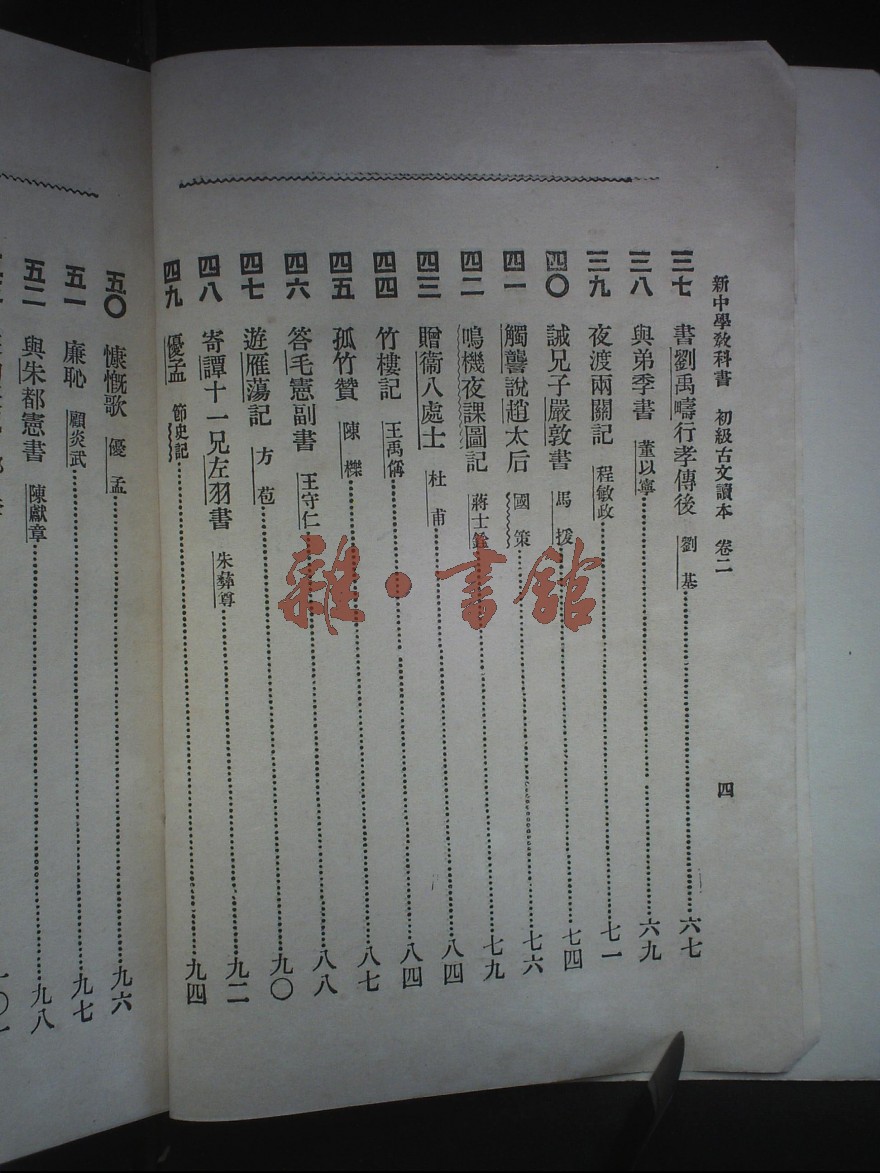 新中學教科書 初級古文讀本 卷二 四
三七 書劉禹疇行孝傳後 劉基 六七
三八 與弟季書 董以寧 六九
三九 夜渡兩關記 程敏政 七一
四〇 誡兄子嚴敦書 馬援 七四
四一 觸讋說趙太后 國策 七六
四二 鳴機夜課圖記 蔣士銓 七九
四三 贈衞八處士 杜甫 八四
四四 竹樓記 王禹偁 八四
四五 孤竹贊 陳櫟 八七
四六 答毛憲副書 王守仁 八八
四七 遊雁蕩記 方苞 九〇
四八 寄譚十一兄左羽書 朱彝尊 九二
四九 優孟 節史記 九四
五〇 慷慨歌 優孟 九六
五一 廉恥 顧炎武 九七
五二 與朱都憲書 陳獻章 九八
雜·書館